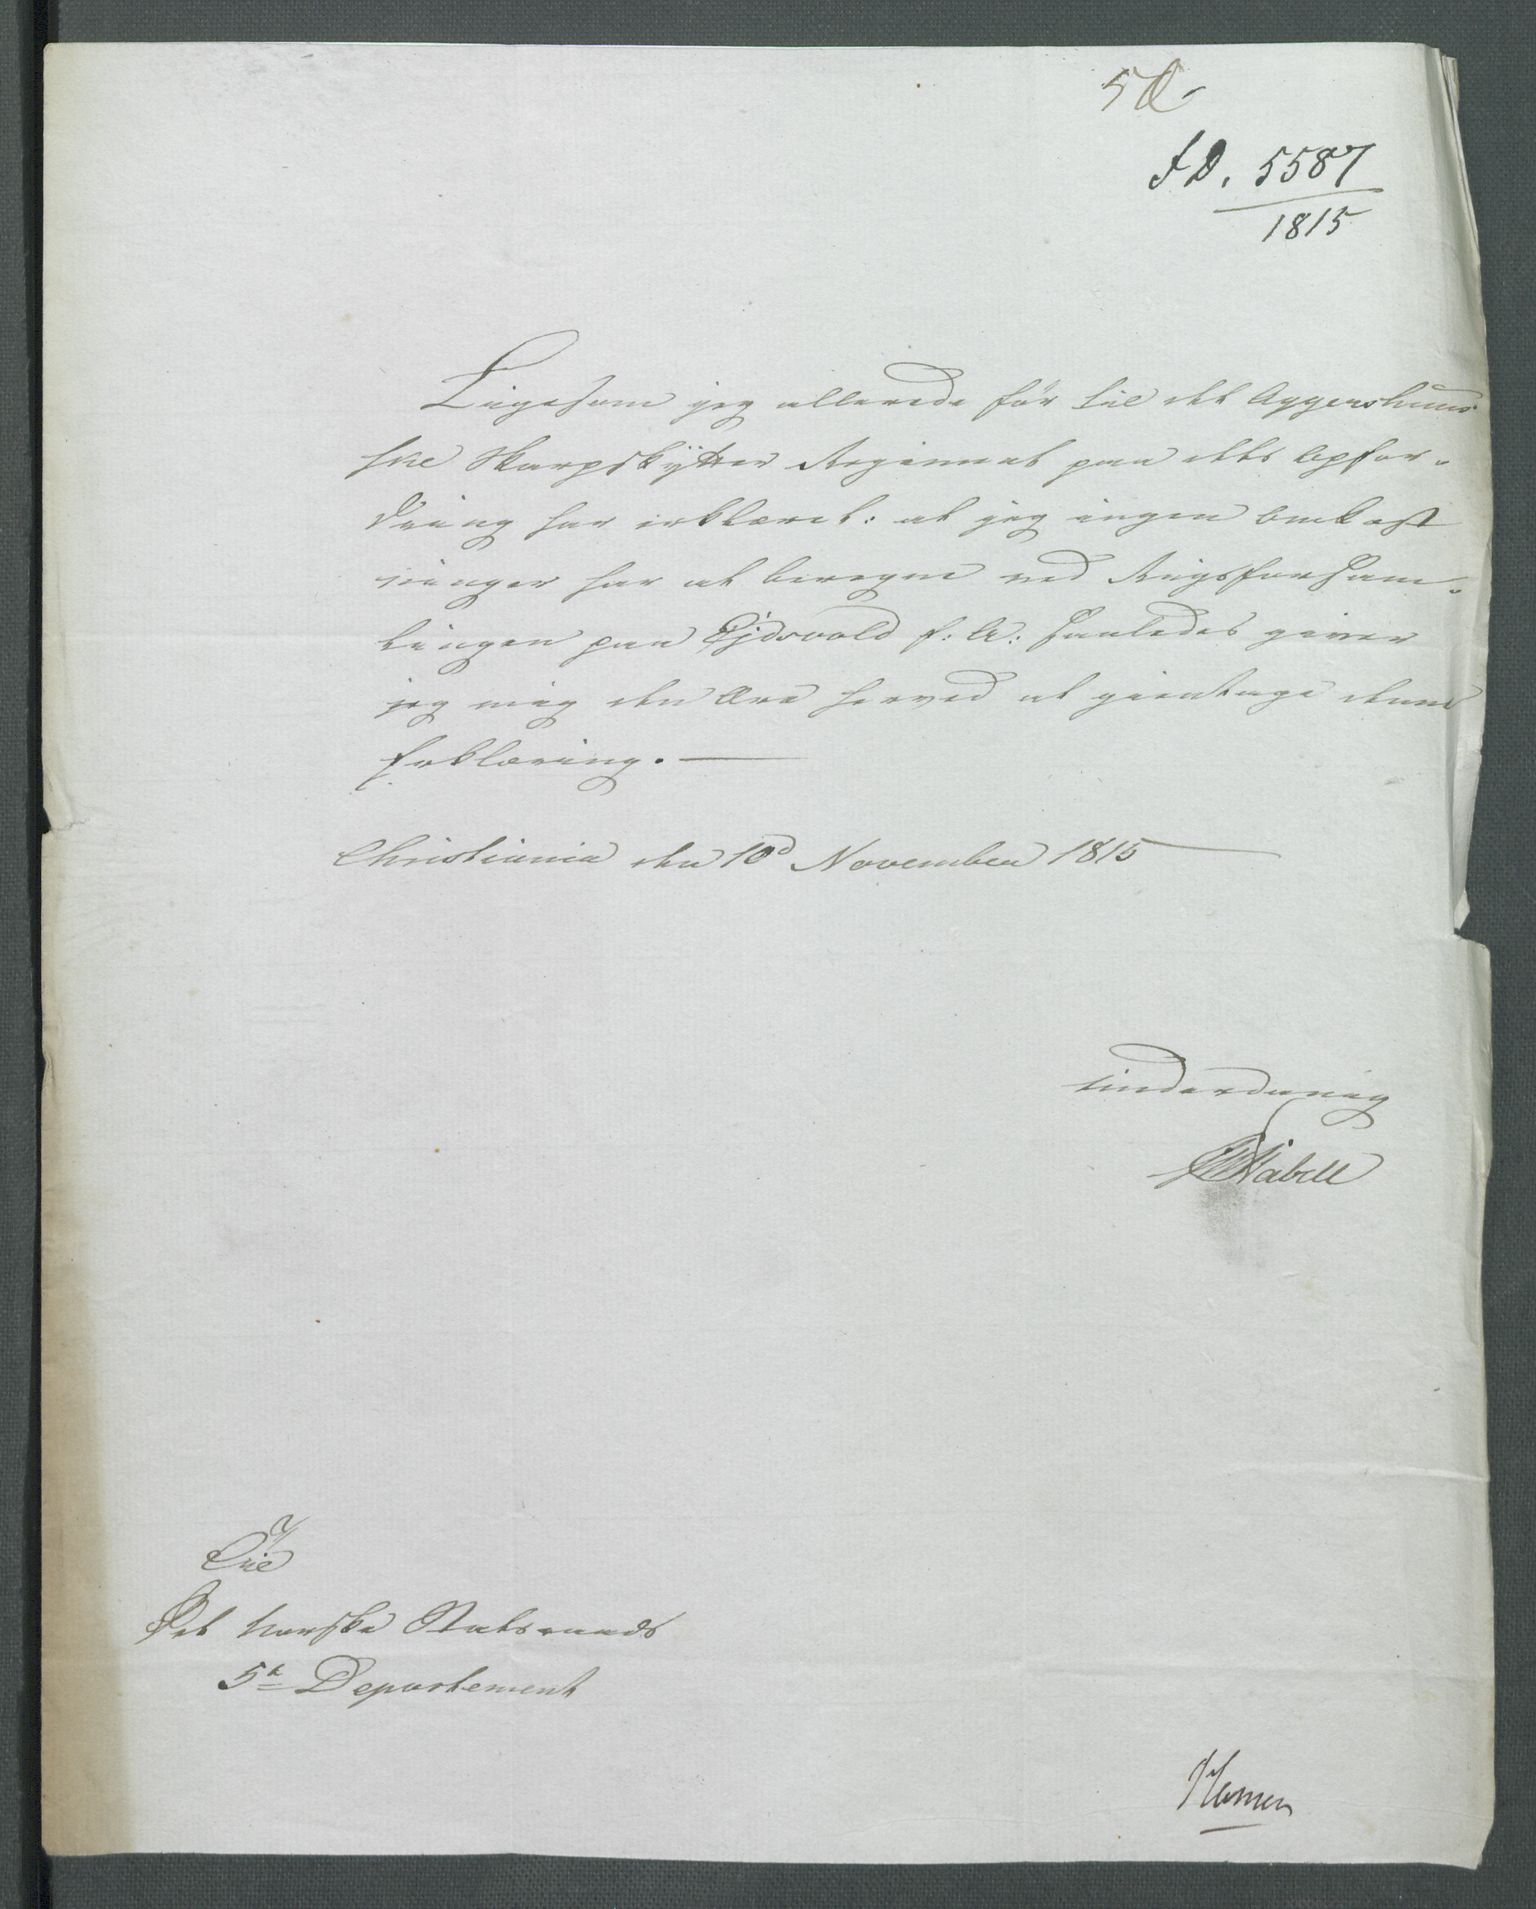 5
FD. 5587
1815
Ligesom jeg allerede før til det Aggershuus
ske Skarpskytter Regiment paa dets Opfor-
dring har erklæret: at jeg ingen Omkost
ninger har at beregne ved Rigsforsam-
lingen paa Ejdsvold f: A: saaledes giver
jeg mig den Ære herved at gientage denne
Erklæring. —
Christiania den 10d November 1815
underdanig
Stabell
Til
Det norske Statsraads
5te Departement